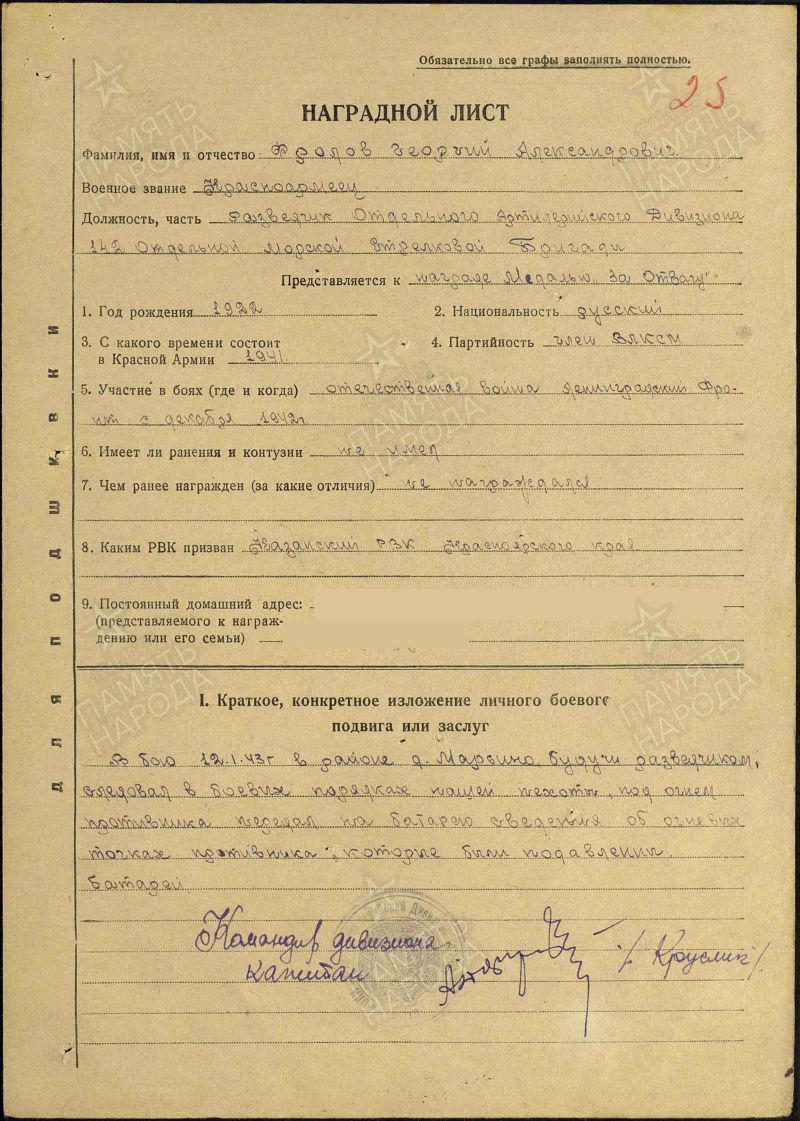 Обязательно все графы заполнять полностью.
25
НАГРАДНОЙ ЛИСТ
Фамилия, имя и отчество Фролов Георгий Александрович
Военное звание Красноармеец
Должность, часть Разведчик Отдельного Артилерийского Дивизиона
142 Отдельной Морской Стрелковой Бригады
Представляется к награде Медалью „За Отвагу"
1. Год рождения 1922
2. Национальность русский
3. С какого времени состоит
в Красной Армии 1941.
4. Партийность член ВЛКСМ
5. Участие в боях (где и когда) отечественная война Ленинградский Фро-
нт с декабря 1942г
6. Имеет ли ранения и контузии не имел
7. Чем ранее награжден (за какие отличия) не награждался
8. Каким РВК призван РВК Красноярского края
9. Постоянный домашний адрес:
(представляемого к награж-
дению или его семьи)
I. Краткое, конкретное изложение личного боевого
подвига или заслуг
В бою 12.1.43г в районе д. Марьино, будучи разведчиком,
следовал в боевых порядках нашей пехоты, под огнем
противника передал на батарею сведения об огневых
точках противника, которые были подавлены
батареей
Командир дивизиона
капитан / Круслик /
для подшивки
ПАМЯТЬ НАРОДА
ПАМЯТЬ НАРОДА
ПАМЯТЬ НАРОДА
ПАМЯТЬ НАРОДА
ПАМЯТЬ НАРОДА
ПАМЯТЬ НАРОДА